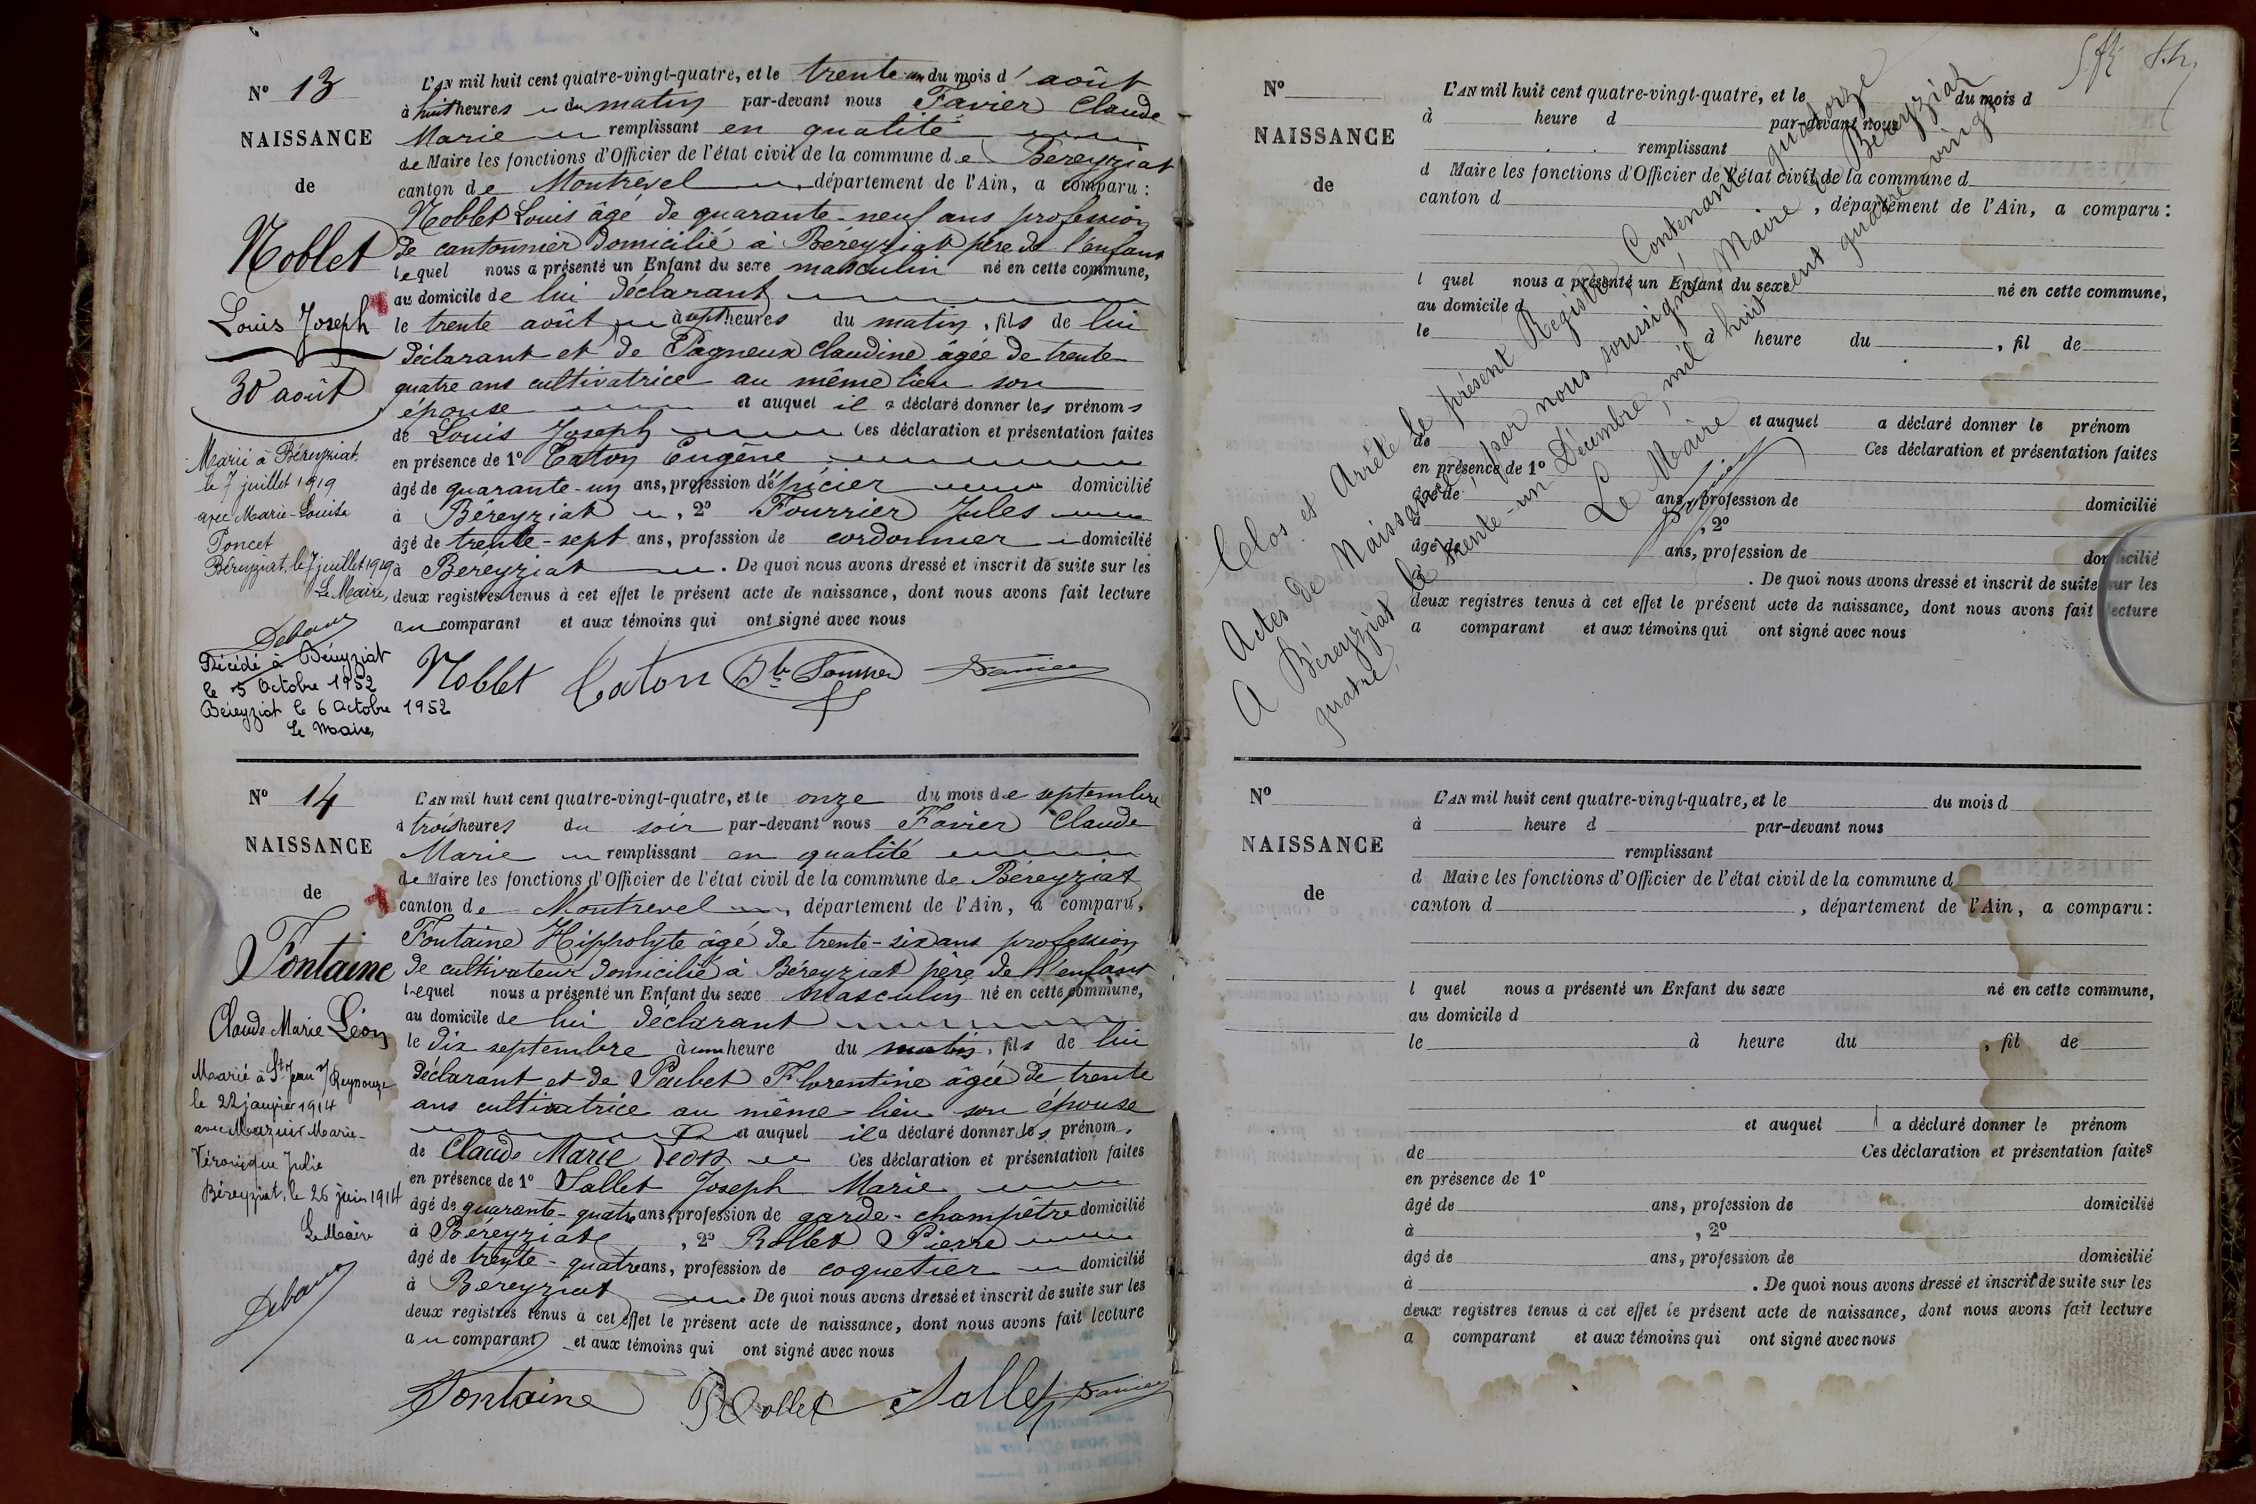 N° 13
NAISSANCE
de
Noblet
Louis Joseph
30 août
Marié à Béreyziat
le 7 juillet 1919
avec Marie-Louise
Poncet
Béreyziat, le 7 juillet 1919
Le Maire,
Décédé à Béreyziat
le 5 Octobre 1952
Béreyziat le 6 Octobre 1952
Le Maire,
L'AN mil huit cent quatre-vingt-quatre, et le trente un du mois d'août
à huit heures du matin par-devant nous Favier Claude
Marie remplissant en qualité
de Maire les fonctions d'Officier de l'état civil de la commune de Béreyziat
canton de Montrevel, département de l'Ain, a comparu :
Noblet Louis âgé de quarante-neuf ans profession
de cantonnier domicilié à Béreyziat père de l'enfant
lequel nous a présenté un Enfant du sexe masculin né en cette commune,
au domicile de lui déclarant
le trente août à sept heures du matin, fils de lui
déclarant et de Pagneux Claudine âgée de trente
quatre ans cultivatrice au même lieu son
épouse et auquel il a déclaré donner les prénoms
de Louis Joseph Ces déclaration et présentation faites
en présence de 1° Caton Eugène
âgé de quarante-un ans, profession d'épicier domicilié
à Béreyziat, 2° Fourrier Jules
âgé de trente-sept ans, profession de cordonnier domicilié
à Béreyziat. De quoi nous avons dressé et inscrit de suite sur les
deux registres tenus à cet effet le présent acte de naissance, dont nous avons fait lecture
au comparant et aux témoins qui ont signé avec nous
Noblet Caton Favier
N° 14
NAISSANCE
de
Fontaine
Claude Marie Léon
Marié à St Jean s/ Reyssouze
le 22 janvier 1914
avec Mazuir Marie-
Véronique Julie
Béreyziat, le 26 juin 1914
Le Maire
L'AN mil huit cent quatre-vingt-quatre, et le onze du mois de septembre
à trois heures du soir par-devant nous Favier Claude
Marie remplissant en qualité
de Maire les fonctions d'Officier de l'état civil de la commune de Béreyziat
canton de Montrevel, département de l'Ain, a comparu,
Fontaine Hippolyte âgé de trente-six ans profession
de cultivateur domicilié à Béreyziat père de l'enfant
lequel nous a présenté un Enfant du sexe masculin né en cette commune,
au domicile de lui déclarant
le dix septembre à une heure du matin, fils de lui
déclarant et de Florentine âgée de trente
ans cultivatrice au même lieu son épouse
et auquel il a déclaré donner les prénom,
de Claude Marie Léon Ces déclaration et présentation faites
en présence de 1° Sallet Joseph Marie
âgé de quarante-quatre ans, profession de garde-champêtre domicilié
à Béreyziat, 2° Rollet Pierre
âgé de trente-quatre ans, profession de coquetier domicilié
à Béreyziat De quoi nous avons dressé et inscrit de suite sur les
deux registres tenus à cet effet le présent acte de naissance, dont nous avons fait lecture
au comparant et aux témoins qui ont signé avec nous
Fontaine Rollet Sallet Favier
N°
NAISSANCE
de
L'AN mil huit cent quatre-vingt-quatre, et le du mois d
à heure d par-devant nous
remplissant
d Maire les fonctions d'Officier de l'état civil de la commune d
canton d , département de l'Ain, a comparu :
l quel nous a présenté un Enfant du sexe né en cette commune,
au domicile d
le à heure du , fil de
et auquel a déclaré donner le prénom
de Ces déclaration et présentation faites
en présence de 1°
âgé de ans, profession de domicilié
à , 2°
âgé de ans, profession de domicilié
à . De quoi nous avons dressé et inscrit de suite sur les
deux registres tenus à cet effet le présent acte de naissance, dont nous avons fait lecture
a comparant et aux témoins qui ont signé avec nous
Clos et Arrêté le présent Registre, Contenant quatorze
Actes de Naissance, par nous soussigné, Maire de Béreyziat
A Béreyziat le trente-un Décembre, mil huit cent quatre vingt
quatre,
Le Maire
Favier
N°
NAISSANCE
de
L'AN mil huit cent quatre-vingt-quatre, et le du mois d
à heure d par-devant nous
remplissant
d Maire les fonctions d'Officier de l'état civil de la commune d
canton d , département de l'Ain, a comparu :
l quel nous a présenté un Enfant du sexe né en cette commune,
au domicile d
le à heure du , fil de
et auquel a déclaré donner le prénom
de Ces déclaration et présentation faites
en présence de 1°
âgé de ans, profession de domicilié
à , 2°
âgé de ans, profession de domicilié
à . De quoi nous avons dressé et inscrit de suite sur les
deux registres tenus à cet effet le présent acte de naissance, dont nous avons fait lecture
a comparant et aux témoins qui ont signé avec nous